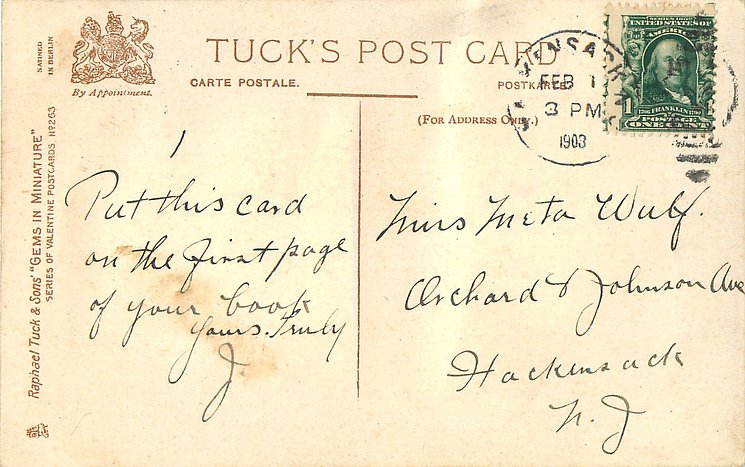 SATINED
IN BERLIN
By Appointment.
TUCK'S POST CARD
CARTE POSTALE.
POSTKARTE
(FOR ADDRESS ONLY.)
FEB 1
3 PM
1903
SERIES 1902
UNITED STATES OF
AMERICA
1
FRANKLIN
POSTAGE
ONE CENT
Raphael Tuck & Sons' "GEMS IN MINIATURE"
SERIES OF VALENTINE POSTCARDS, No 263
Put this card
on the first page
of your book
Yours. Truly
J.
Miss Meta Wulf.
Orchard & Johnson Ave
Hackensack
N. J